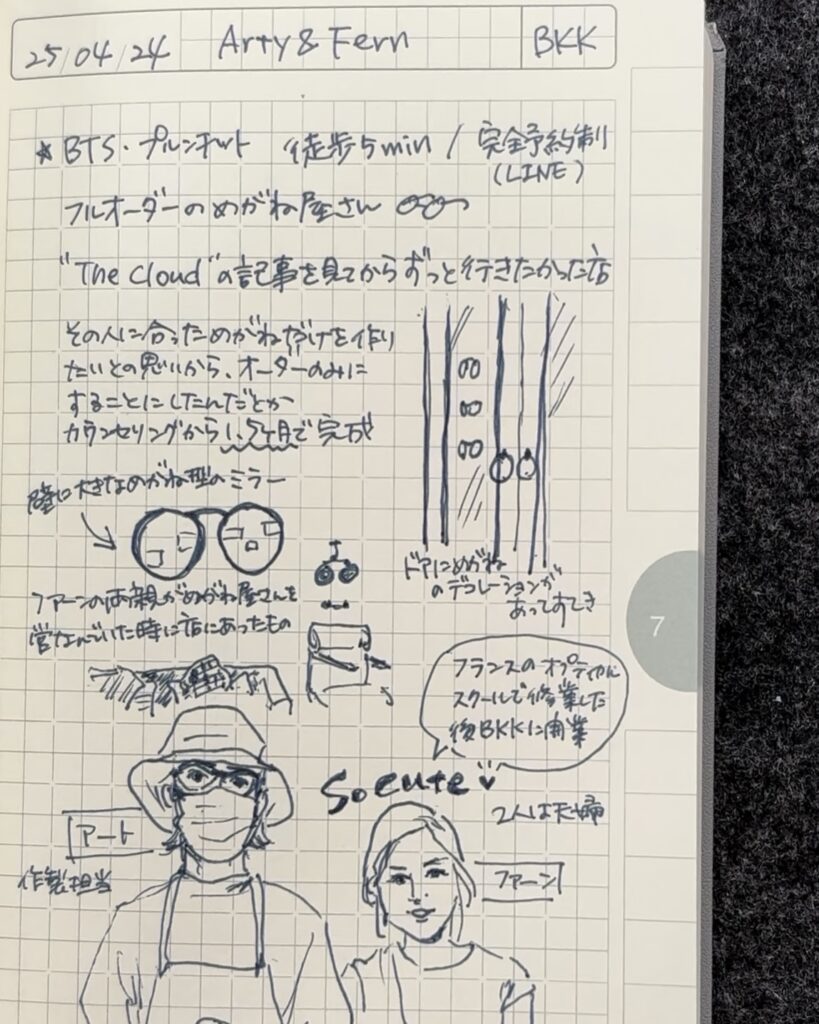 25/04/24 Arty & Fern BKK
★ BTS・プルンチット 徒歩5min / 完全予約制
(LINE)
フルオーダーのめがね屋さん
"The Cloud"の記事を見てからずっと行きたかった店
その人に合っためがねだけを作り
たいとの思いから、オーダーのみに
することにしたんだとか
カウンセリングから1.5ヶ月で完成
壁に大きなめがね型のミラー
ファーンの両親がめがね屋さんを
営なんでいた時に店にあったもの
ドアにめがね
のデコレーションが
あってすてき
フランスのオプティカル
スクールで修業した
後BKKに開業
So cute
2人は夫婦
アート
作製担当
ファーン
7